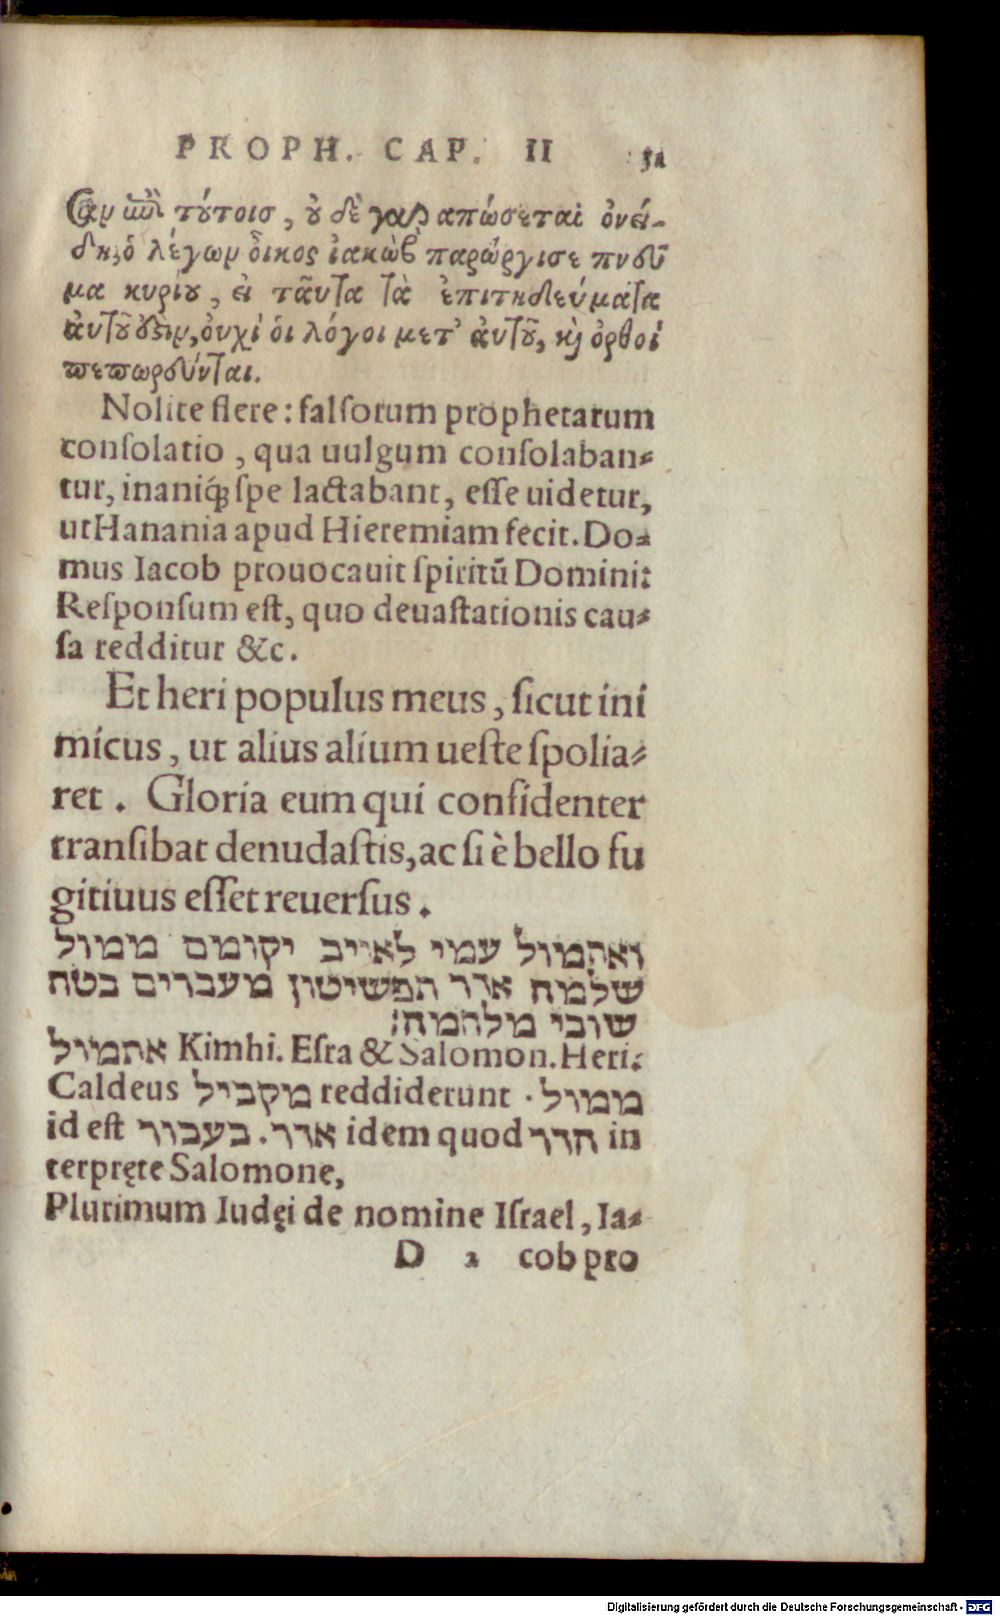 PROPH. CAP. II 51
τούτοις, ουδὲ γαρ απώσεται ὀνεί-
δη, ὁ λέγων ὅικος ἰακὼβ παρώργισε πνευ
μα κυρίου, ει ταῦτα τὰ ἐπιτηδεύματα
ἀυτοῦ ὀυχί ὁι λόγοι μετ᾽ ἀυτοῦ, κὶ ὀρθοί
πεπορεύνται.
Nolite flere: falſorum prophetarum
conſolatio, qua uulgum conſolaban-
tur, inaniq́ꝫ ſpe lactabant, eſſe uidetur,
ut Hanania apud Hieremiam fecit. Do-
mus Iacob prouocauit ſpiritū Domini:
Reſponſum eſt, quo deuaſtationis cau-
ſa redditur &c.
Et heri populus meus, ſicut ini
micus, ut alius alium ueſte ſpolia-
ret. Gloria eum qui confidenter
tranſibat denudaſtis, ac ſi è bello fu
gitiuus eſſet reuerſus.
ואתמול עמי לאייב יקומם ממול
שלמה אדר תפשיטון מעברים בטח
שובי מלחמה:
אתמול Kimhi. Eſra & Salomon. Heri.
Caldeus מקביל reddiderunt . ממול
id eſt בעבור. אדר idem quod הדר in
terpręte Salomone,
Plurimum Iudęi de nomine Iſrael, Ia-
D 2 cob pro
Digitalisierung gefördert durch die Deutsche Forschungsgemeinschaft - DFG